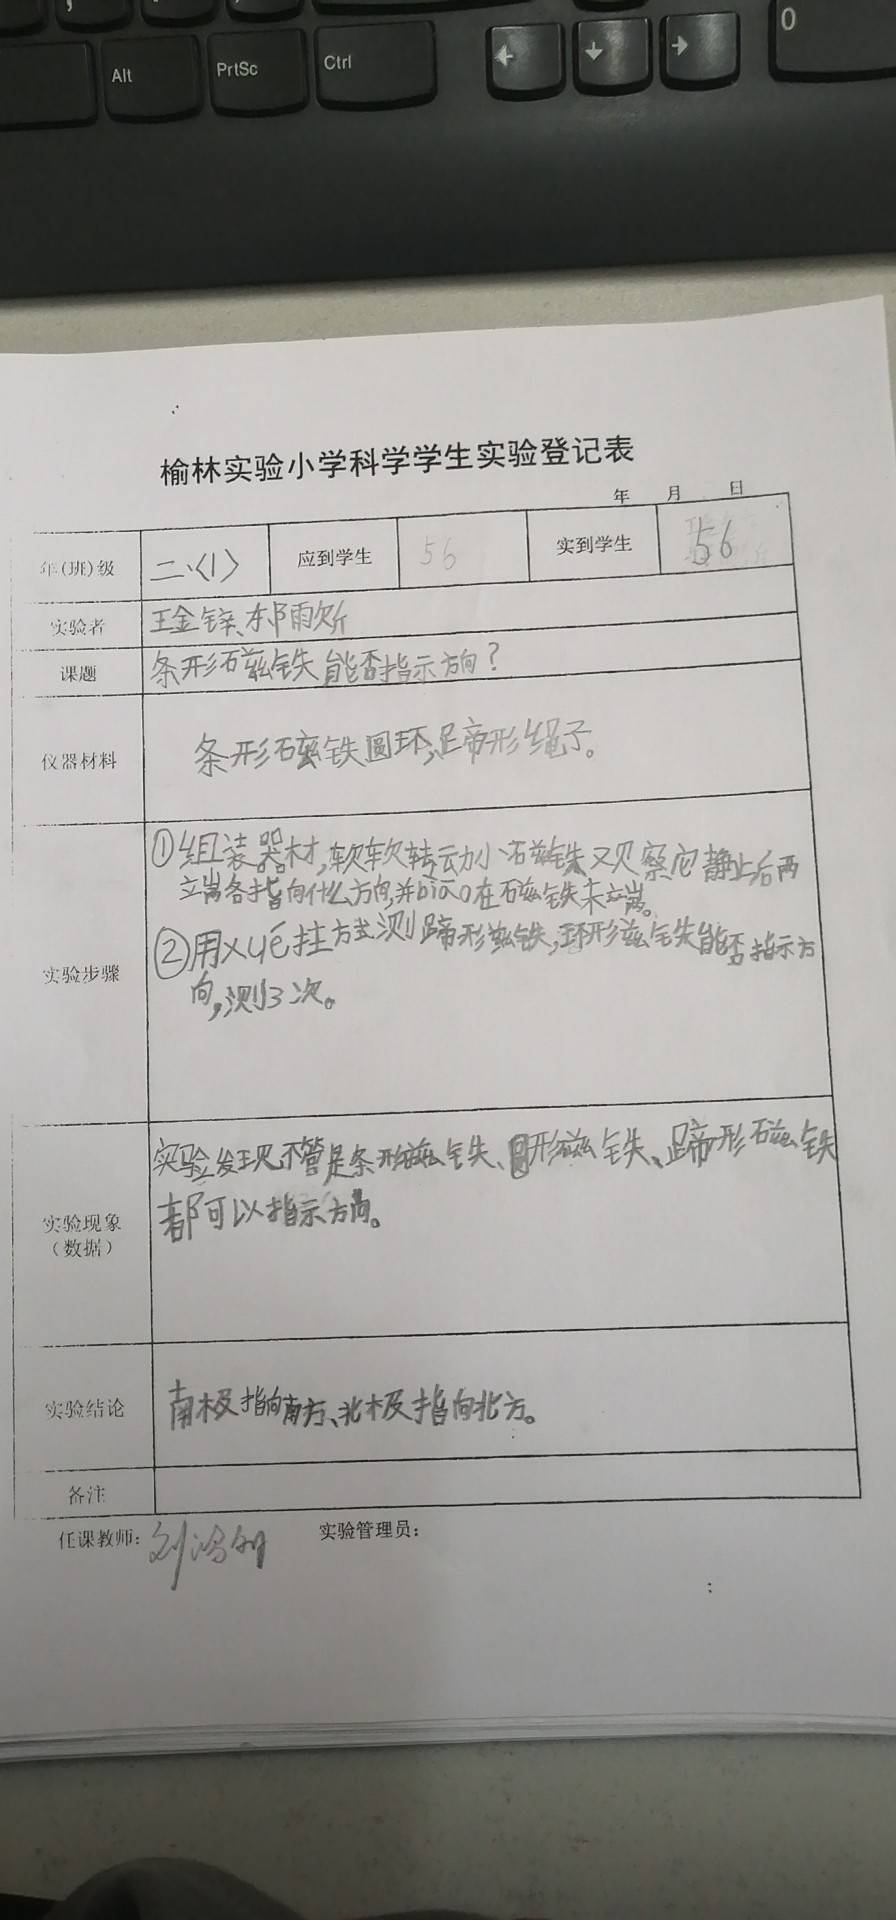 Alt
PrtSc
Ctrl
0
榆林实验小学科学学生实验登记表
年 月 日
年(班)级 二、(1) 应到学生 56 实到学生 56
实验者 王金锌、邾雨欣
课题 条形石磁铁能否指示方向?
仪器材料 条形磁铁圆环,蹄形绳子。
实验步骤
①组装器材,软软转动小磁铁又见察它静止后两
端各指向什么方向,并biāo在磁铁末端。
②用xué挂方式测蹄形磁铁,环形磁铁能否指示方
向,测3次。
实验现象
(数据)
实验发现不管是条形磁铁、圆形磁铁、蹄形磁铁
都可以指示方向。
实验结论 南极指向南方、北极指向北方。
备注
任课教师: 刘 实验管理员: